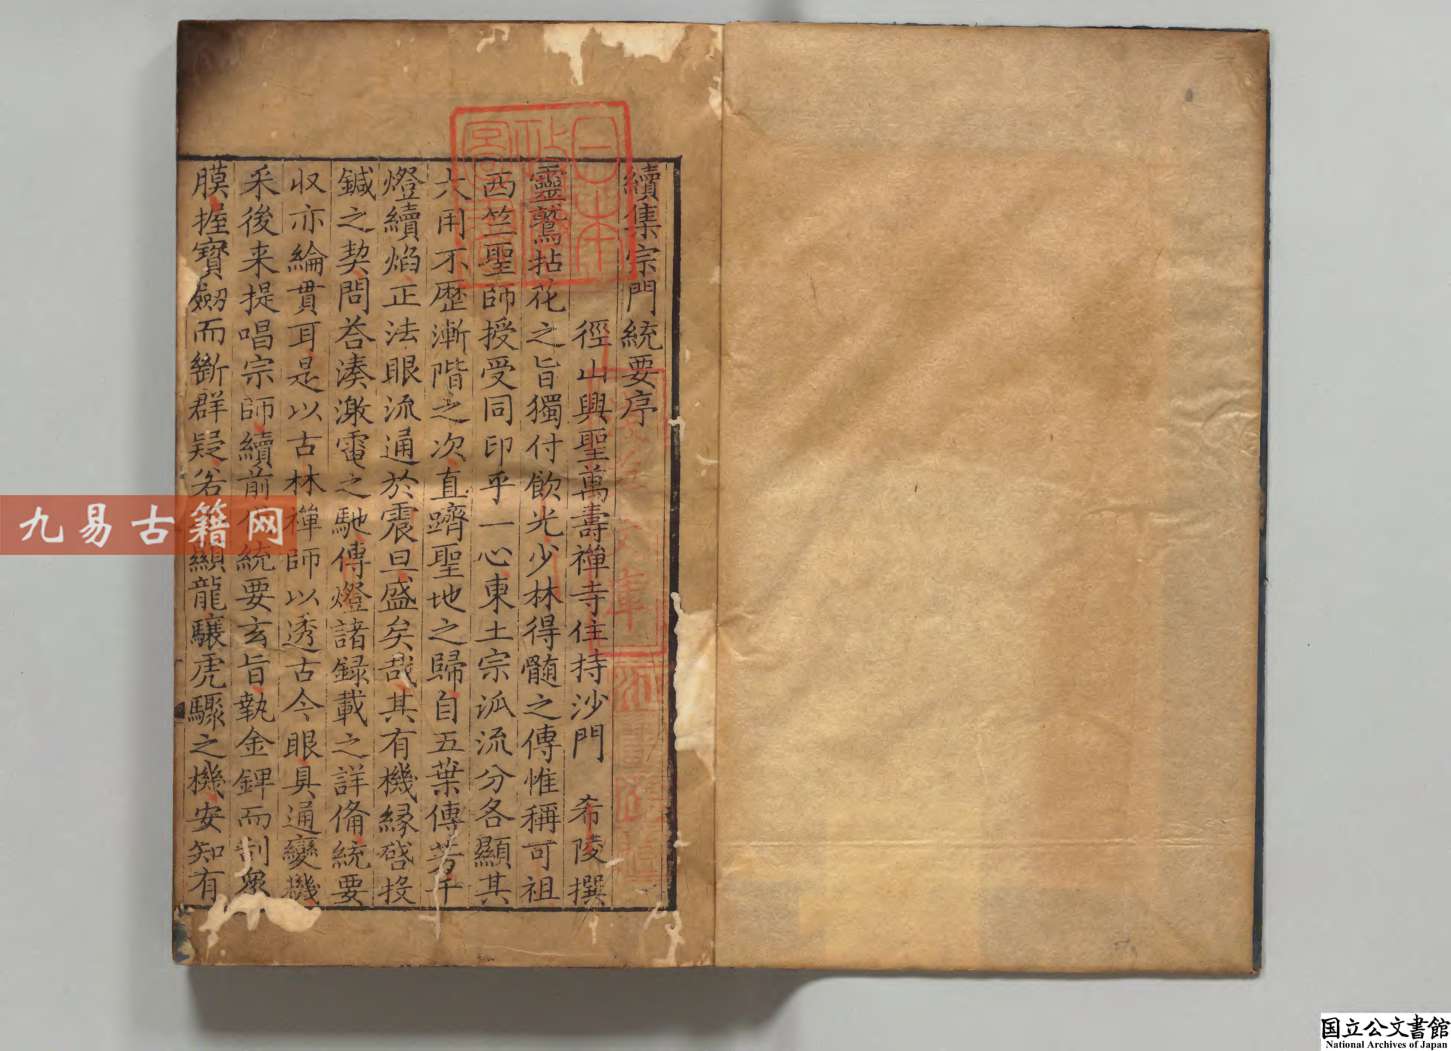 續集宗門統要序
徑山興聖萬壽禪寺住持沙門　希陵撰
靈鷲拈花之旨獨付飲光少林得髓之傳惟稱可祖
西竺聖師授受同印乎一心東土宗派流分各顯其
大用不歷漸階之次直躋聖地之歸自五葉傳芳千
燈續焰正法眼流通於震旦盛矣哉其有機緣啓投
鍼之契問荅湊激電之馳傳燈諸録載之詳俻統要
収亦綸貫耳是以古林禪師以透古今眼具通變機
釆後来提唱宗師續前統要玄旨執金錍而刮眾
膜握寳劔而斷群疑若顯龍驤虎驟之機安知有
日本
文庫
九易古籍网
国立公文書館
National Archives of Japan